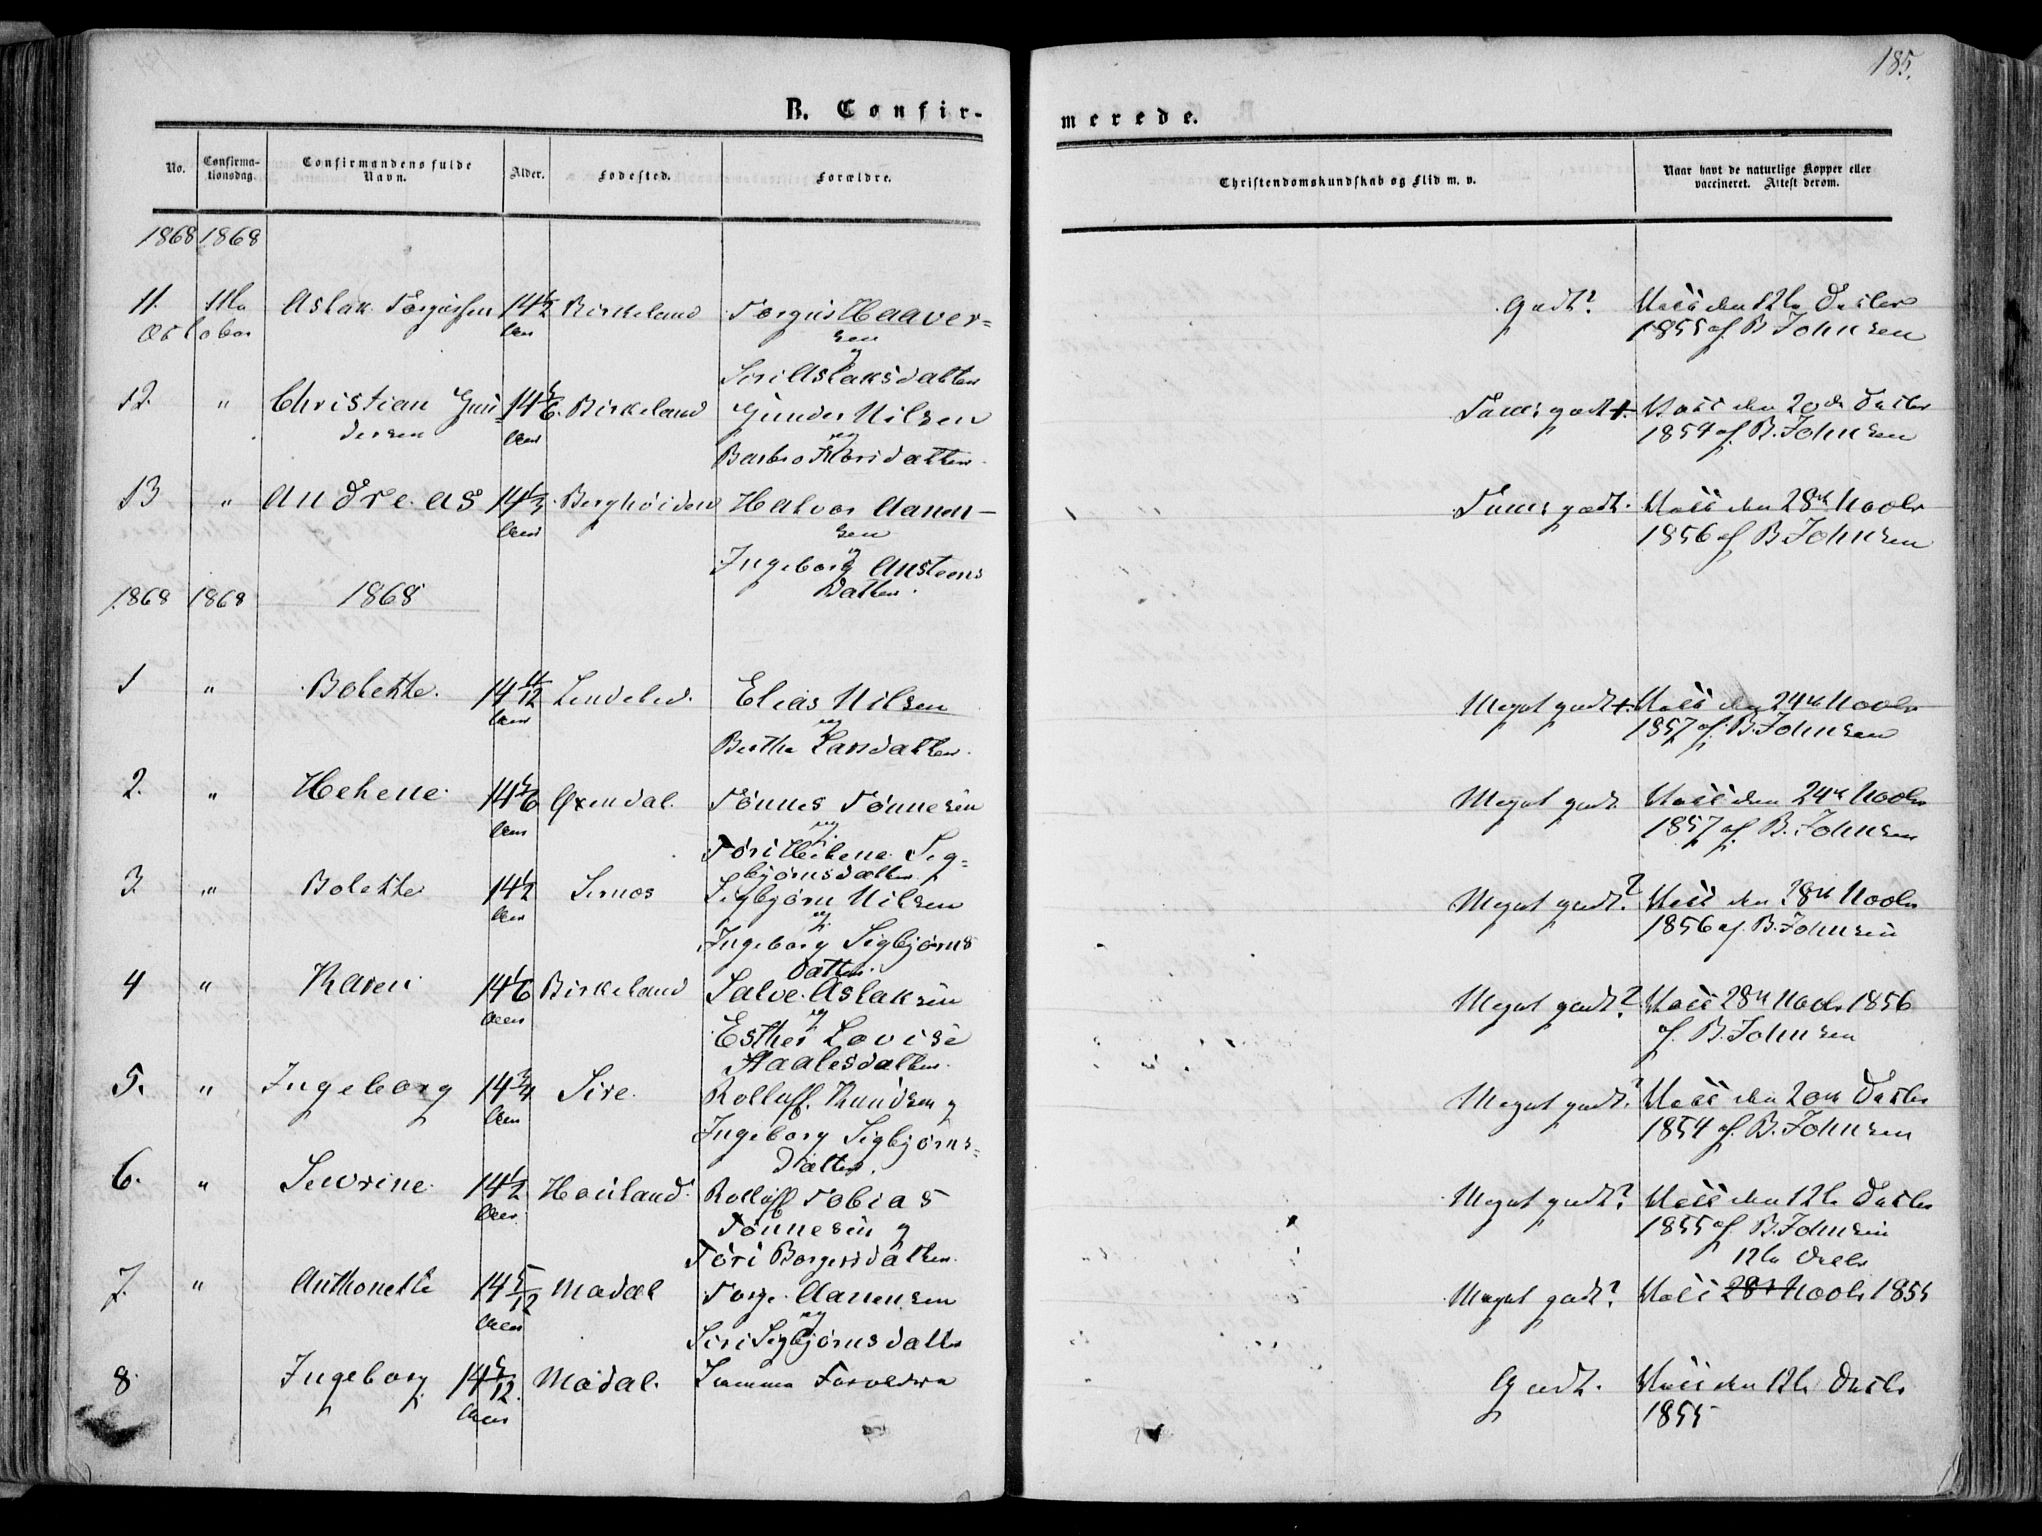 185.
B. Confir-
merede.
No.
Confirma-
tionsdag.
Confirmandens fulde
Navn.
Alder.
Fødested.
Forældre.
Christendomskundskab og Flid m. v.
Naar havt de naturlige Kopper eller
vaccineret. Attest derom.
1868 1868
11. 11te Aslak Torgussen 14 1/2 Birkeland Torgus Haaver= Godt? Vacc den 12te Octbr
October Aar sen 1855 af B Johnsen
og
Siri Aslaksdatter
12. " Christian Gun 14 1/6 Birkeland Gunder Nilsen Tems godt +. Vacc den 20de Octbr
dersen Aar og 1854 af B. Johnsen
Barbro
13 " Andreas 14 1/3 Berghöiden Halvor Aanen- Tems godt. Vacc den 28de Novbr
Aar sen 1856 af B Johnsen
og
Ingeborg Austeens
Datter.
1868 1868 1868
1 " Bolette. 14 11/12 Lindeled. Elias Nilsen Meget godt +. Vacc den 24de Novbr
Aar og 1857 af. B. Johnsen
Berthe Larsdatter.
2. " Helene. 14 5/6 Øxendal. Tønnes Tønnesen Meget godt Vacc den 24de Novbr
Aar og 1857 af. B. Johnsen
Töri Helene Sig=
björnsdatter
3. " Bolette 14 1/2 Sirnes Sigbjörn Nilsen Meget godt? Vacc den 28de Novbr
Aar og 1856 af. B. Johnsen
Ingeborg Sigbjörns
Datter.
4 " Karen 14 1/6 Birkeland Salve Aslaksen Meget godt? Vacc 28de Novbr 1856
Aar og af. B. Johnsen
Esther Lovise
Staalesdatter.
5. " Ingeborg 14 3/4 Sire. Rolluff. Knudsen og Meget godt? Vacc den 20de Octbr
Aar Ingeborg Sigbjörns= 1854 af. B. Johnsen
Datter.
6. " Sevrine 14 1/2 Houland. Rolluff Tobias Meget godt? Vacc den 12te Octbr
Aar Tönnesen og 1855 af B. Johnsen
Töri Borgersdatter. 12te Octbr
7. " Anthonette 14 5/12 Modal Torge Aanensen Meget godt? Vacc 28de Novbr 1855
Aar og
Siri Sigbjörnsdatter
8 Ingeborg 14 5/12. Modal. Samme Forældre Godt. Vacc den 12te Octbr
Aar 1855